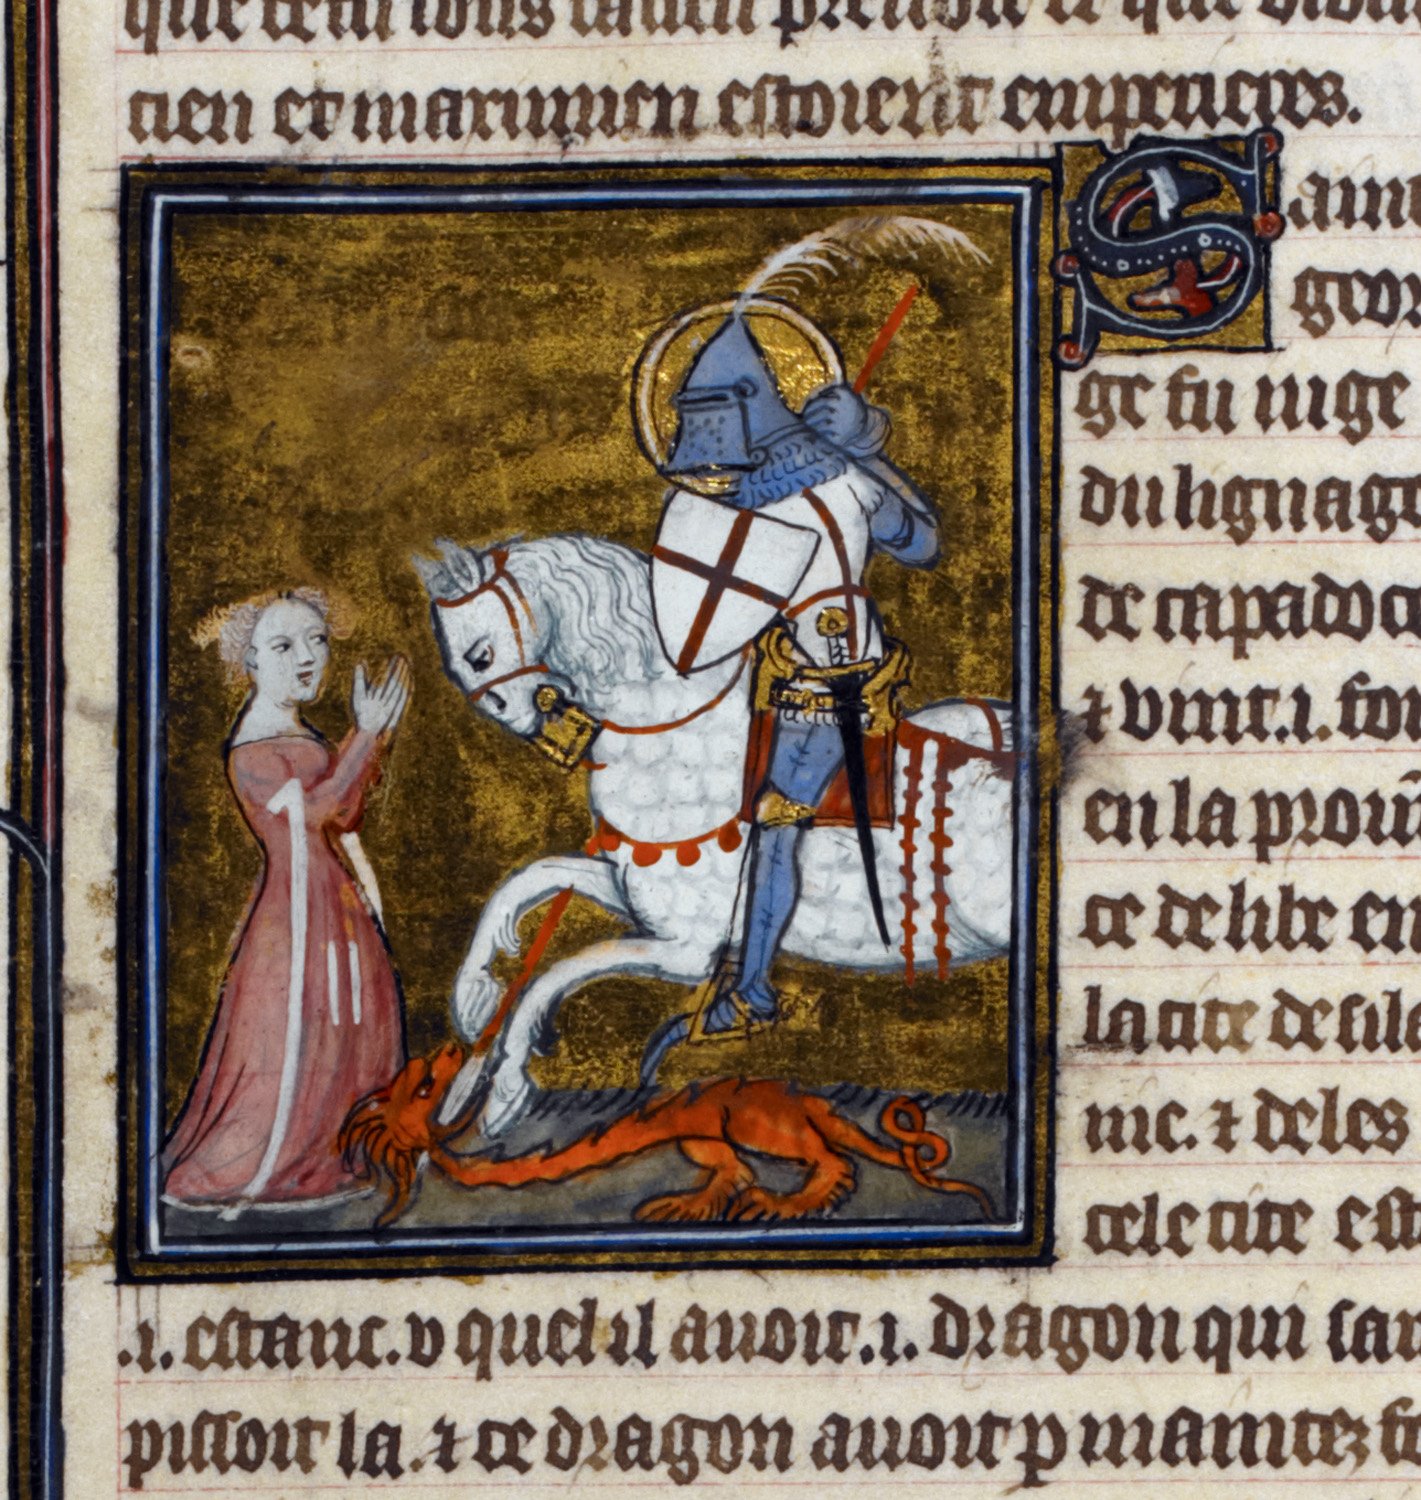 que cetui tons
tien et maximien estoient empereres.
Saint
geor
ge fu nige
du lignage
de capadoce
⁊ vint .i. foi
en la prouin̄
ce de libe en
la cite de sile
nie. ⁊ deles
cele cite est
.i. estanc. v quel il auoit .i. dragon qui sar
pissoit la. ⁊ ce dragon auoit p maintez fo